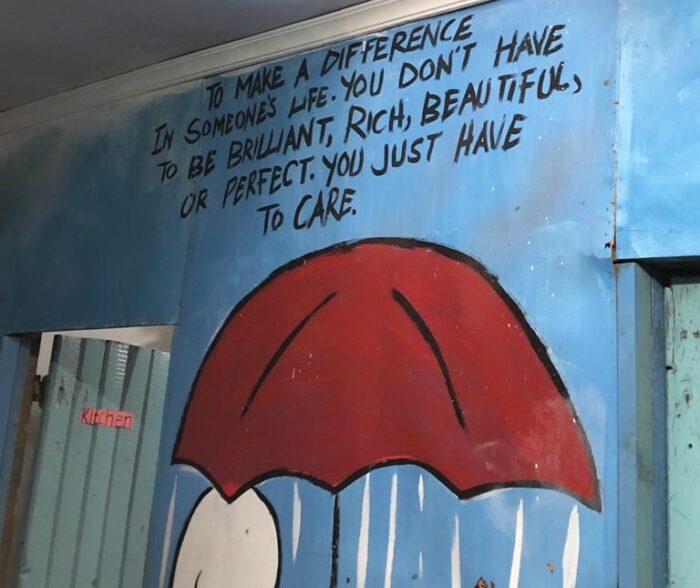 TO MAKE A DIFFERENCE
IN SOMEONE'S LIFE. YOU DON'T HAVE
TO BE BRILLIANT, RICH, BEAUTIFUL,
OR PERFECT. YOU JUST HAVE
TO CARE.
Kitchen